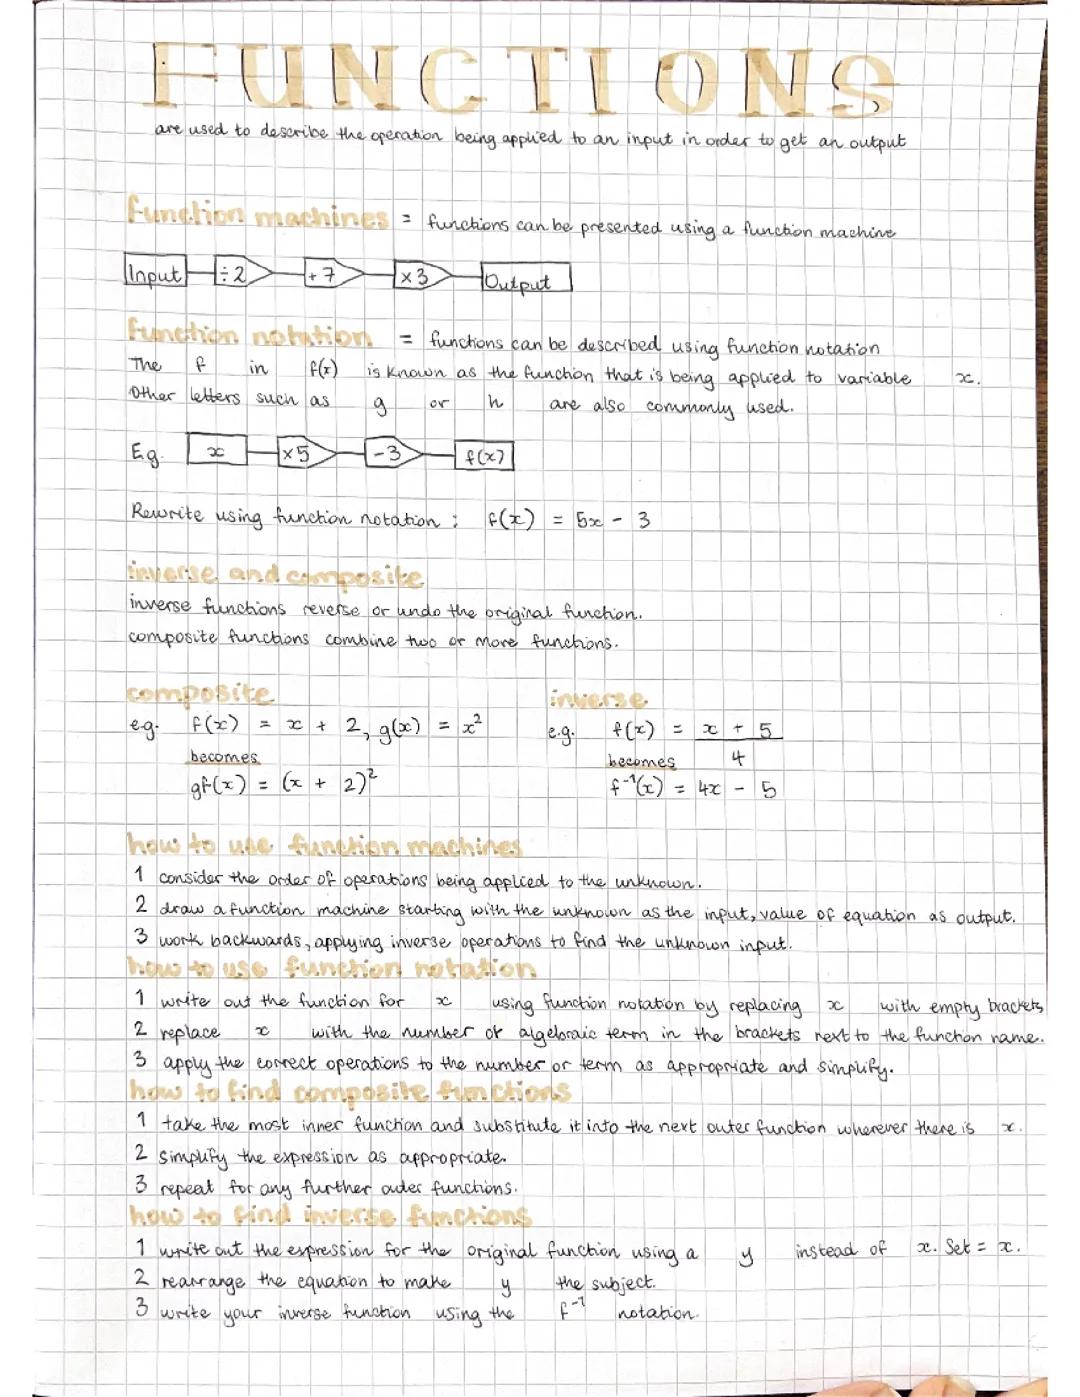 FUNCTIONS
are used to describe the operation being applied to an input in order to get an output
function machines = functions can be presented using a function machine
Input ÷2 +7 ×3 Output
function notation = functions can be described using function notation
The f in f(x) is known as the function that is being applied to variable x.
Other letters such as g or h are also commonly used.
Eg. x ×5 -3 f(x)
Rewrite using function notation : f(x) = 5x - 3
inverse and composite
inverse functions reverse or undo the original function.
composite functions combine two or more functions.
composite inverse
e.g. f(x) = x + 2, g(x) = x² e.g. f(x) = x + 5
becomes becomes 4
gf(x) = (x + 2)² f⁻¹(x) = 4x - 5
how to use function machines
1 consider the order of operations being applied to the unknown.
2 draw a function machine starting with the unknown as the input, value of equation as output.
3 work backwards, applying inverse operations to find the unknown input.
how to use function notation
1 write out the function for x using function notation by replacing x with empty brackets
2 replace x with the number or algebraic term in the brackets next to the function name.
3 apply the correct operations to the number or term as appropriate and simplify.
how to find composite functions
1 take the most inner function and substitute it into the next outer function wherever there is x.
2 simplify the expression as appropriate.
3 repeat for any further outer functions.
how to find inverse functions
1 write out the expression for the original function using a y instead of x. Set = x.
2 rearrange the equation to make y the subject.
3 write your inverse function using the f⁻¹ notation.